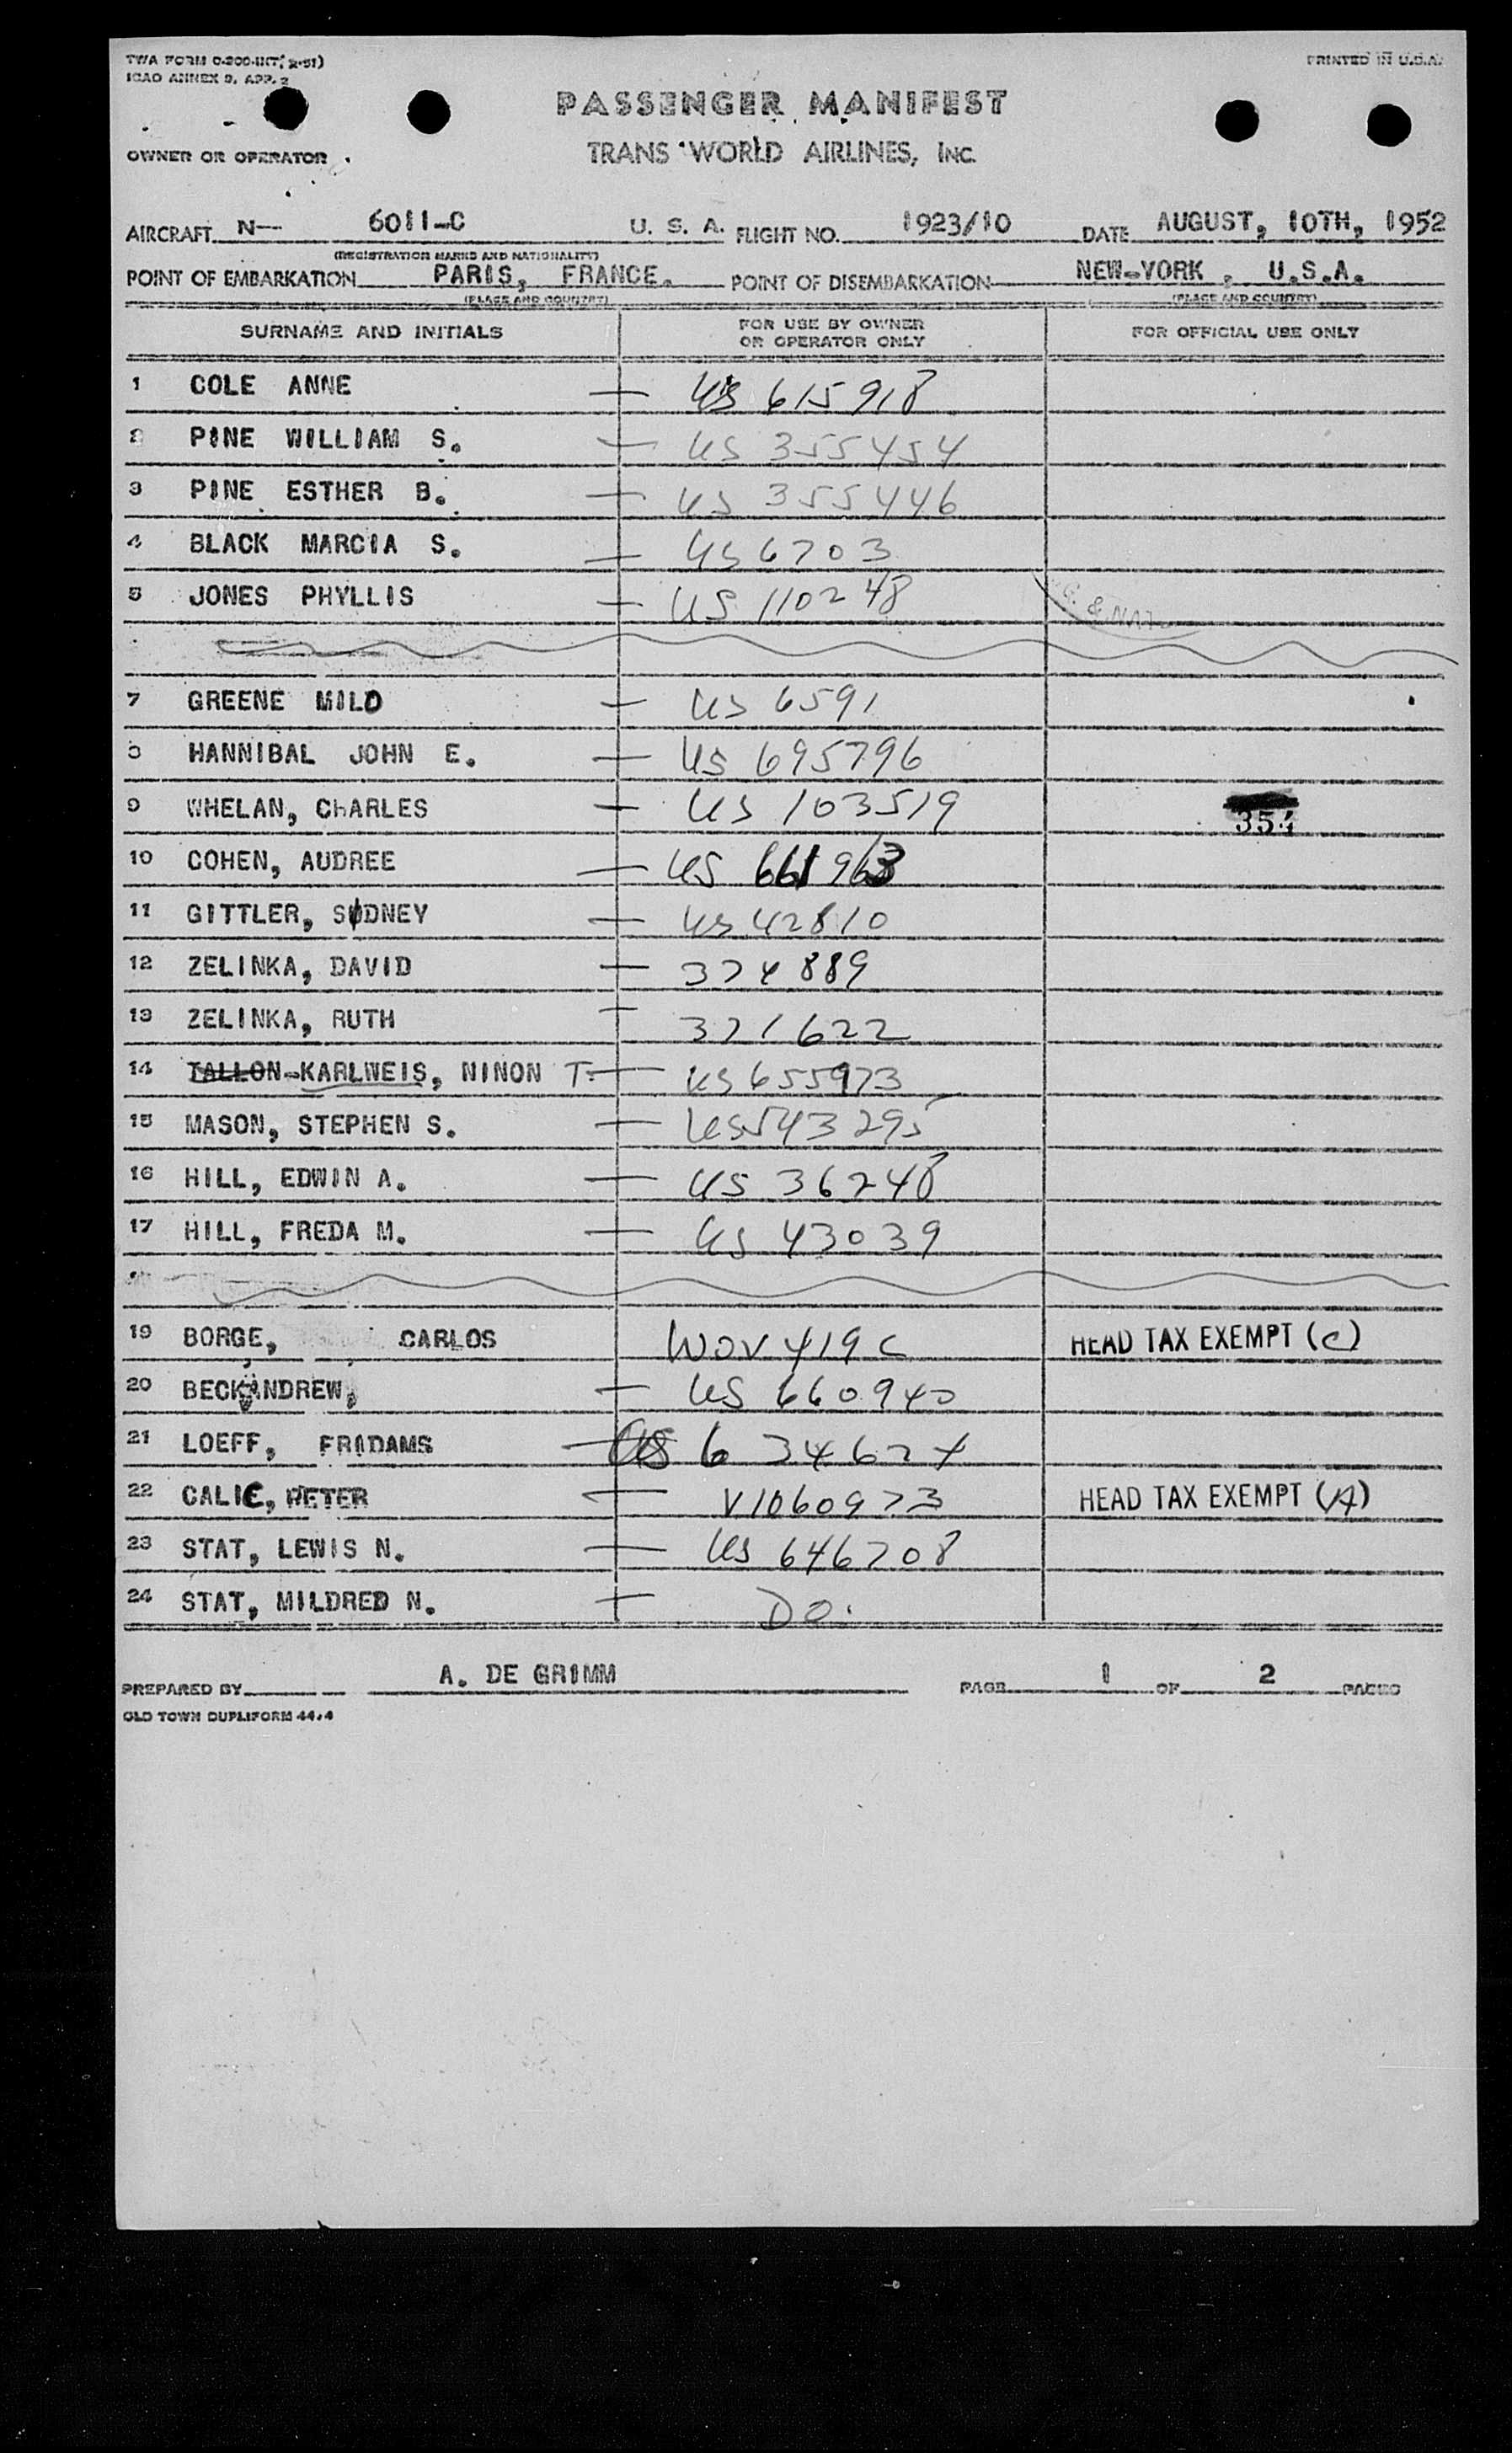 TWA FORM O-200-INT( 2-51)
PRINTED IN U.S.A.
ICAO ANNEX 9, APP. 2
PASSENGER MANIFEST
OWNER OR OPERATOR
TRANS WORLD AIRLINES, INC.
AIRCRAFT N— 6011-C U. S. A. FLIGHT NO. 1923/10 DATE AUGUST, 10TH, 1952
(REGISTRATION MARKS AND NATIONALITY)
POINT OF EMBARKATION PARIS, FRANCE. POINT OF DISEMBARKATION NEW-YORK , U.S.A.
(PLACE AND COUNTRY) (PLACE AND COUNTRY)
SURNAME AND INITIALS FOR USE BY OWNER OR OPERATOR ONLY FOR OFFICIAL USE ONLY
1 COLE ANNE — US 615918
2 PINE WILLIAM S. — US 355454
3 PINE ESTHER B. — US 355446
4 BLACK MARCIA S. — US 6703
5 JONES PHYLLIS — US 110248
& NAT
7 GREENE MILO — US 6591
8 HANNIBAL JOHN E. — US 695796
9 WHELAN, CHARLES — US 103519 354
10 COHEN, AUDREE — US 661963
11 GITTLER, SYDNEY — US 42810
12 ZELINKA, DAVID — 374889
13 ZELINKA, RUTH — 371622
14 TALLON-KARLWEIS, NINON T. — US 655973
15 MASON, STEPHEN S. — US 543295
16 HILL, EDWIN A. — US 36248
17 HILL, FREDA M. — US 43039
19 BORGE, CARLOS WOV 419 C HEAD TAX EXEMPT (C)
20 BECK, ANDREW, — US 660940
21 LOEFF, FRIDAMS — US 634624
22 CALIC, PETER — V1060973 HEAD TAX EXEMPT (A)
23 STAT, LEWIS N. — US 646708
24 STAT, MILDRED N. — DO.
PREPARED BY A. DE GRIMM PAGE 1 OF 2 PAGES
OLD TOWN DUPLIFORM 44/4